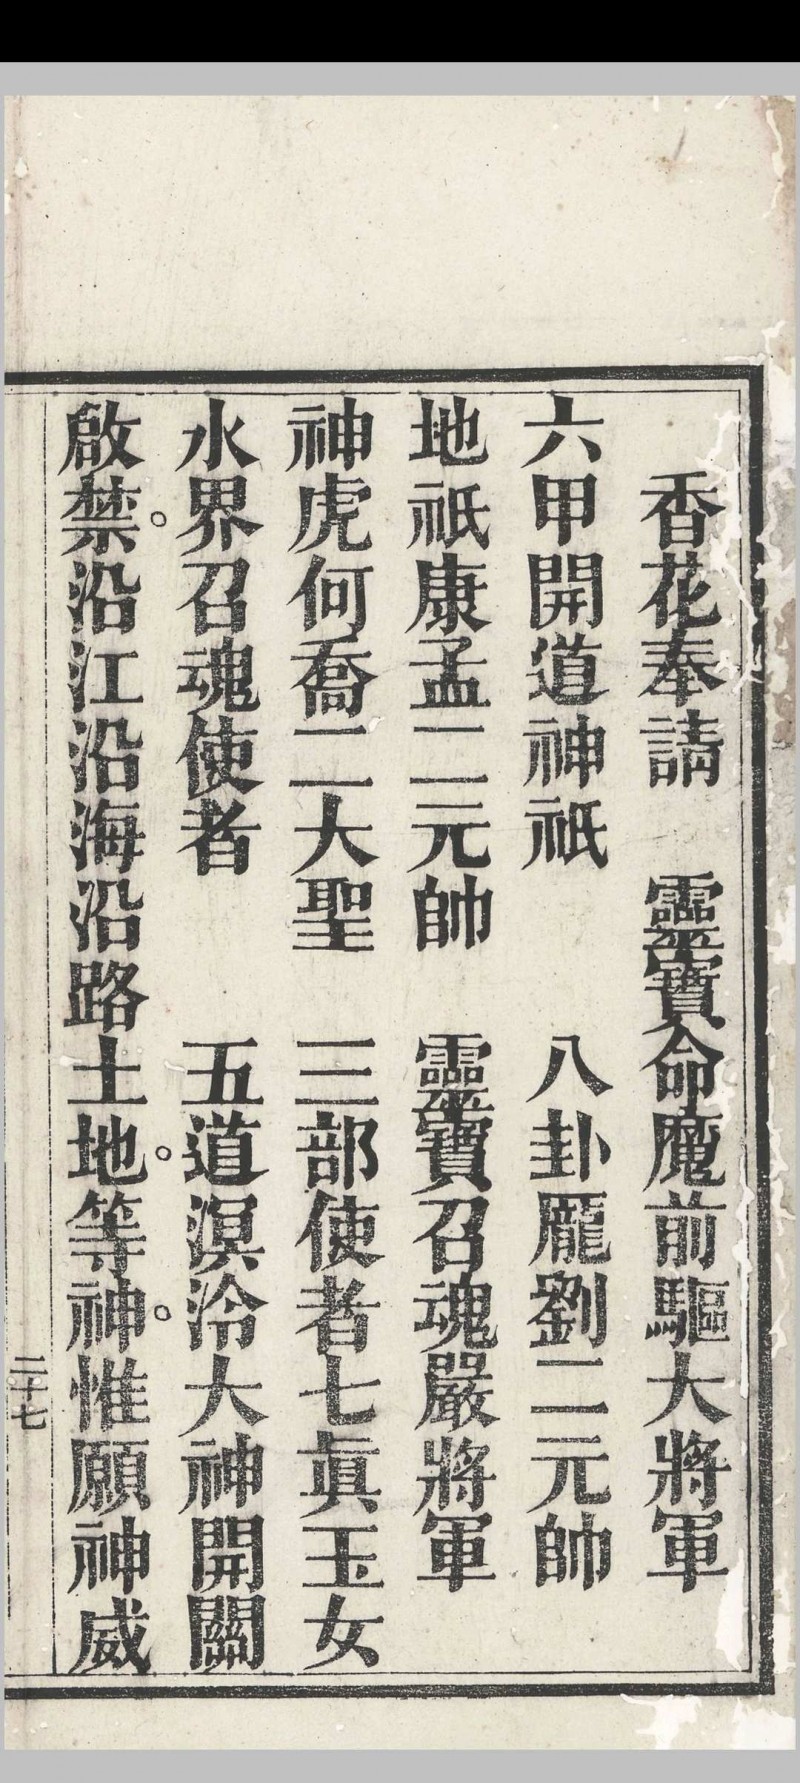 香花奉請　靈寶命魔前驅大將軍
六甲開道神祇　八卦龐劉二元帥
地祇康孟二元帥　靈寶召魂嚴將軍
神虎何喬二大聖　三部使者七眞玉女
水界召魂使者　五道溟泠大神開關
啟禁。沿江沿海沿路土地。等神。惟願神威
二十七